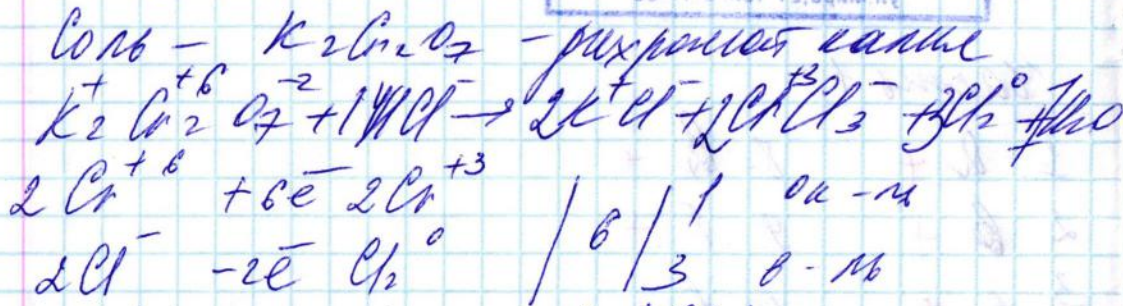 Соль – K₂Cr₂O₇ – дихромат калия
K₂⁺Cr₂⁺⁶O₇⁻² + 14HCl⁻ → 2K⁺Cl⁻ + 2Cr⁺³Cl₃⁻ + 3Cl₂⁰ + 7H₂O
2Cr⁺⁶ +6е⁻ 2Cr⁺³ | 6 | 1 ок-ль
2Cl⁻ -2е⁻ Cl₂⁰ | 3 в-ль